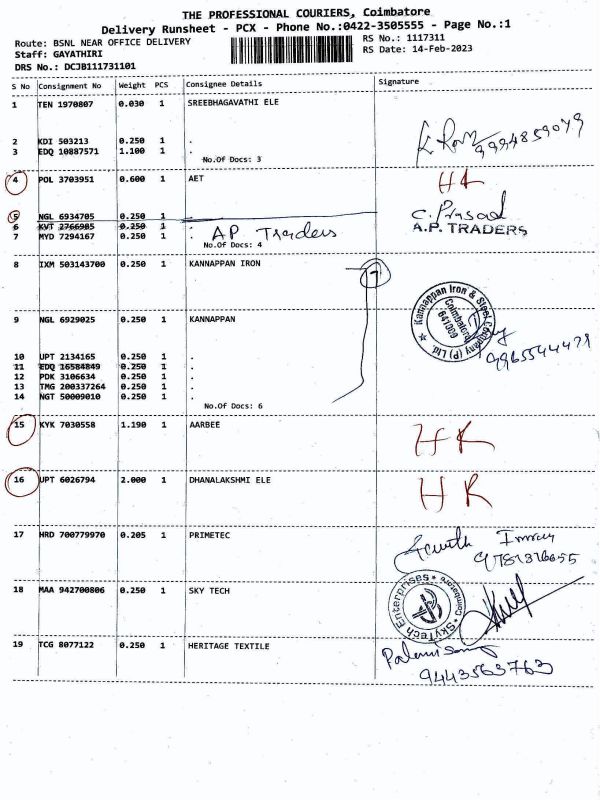 THE PROFESSIONAL COURIERS, Coimbatore
Delivery Runsheet - PCX - Phone No.:0422-3505555 - Page No.:1
Route: BSNL NEAR OFFICE DELIVERY
RS No.: 1117311
Staff: GAYATHIRI
RS Date: 14-Feb-2023
DRS No.: DCJB111731101
S No Consignment No Weight PCS Consignee Details Signature
1 TEN 1970807 0.030 1 SREEBHAGAVATHI ELE
2 KDI 503213 0.250 1 .
3 EDQ 10887571 1.100 1 .
9994859079
No.Of Docs: 3
4 POL 3703951 0.600 1 AET
5 NGL 6934705 0.250 1 .
C. Prasad
6 KVT 2766985 0.250 1 .
A.P. TRADERS
7 MYD 7294167 0.250 1 . AP Traders
No.Of Docs: 4
8 IXM 503143700 0.250 1 KANNAPPAN IRON
7
9 NGL 6929025 0.250 1 KANNAPPAN
Kannappan Iron & Steel Company (P) Ltd.
Coimbatore
641009
10 UPT 2134165 0.250 1 .
11 EDQ 16584849 0.250 1 .
12 PDK 3106634 0.250 1 .
13 TMG 200337264 0.250 1 .
14 NGT 50009010 0.250 1 .
No.Of Docs: 6
15 KYK 7030558 1.190 1 AARBEE
HK
16 UPT 6026794 2.000 1 DHANALAKSHMI ELE
HR
17 HRD 700779970 0.205 1 PRIMETEC
18 MAA 942700806 0.250 1 SKY TECH
SkyTech Enterprises
Coimbatore
19 TCG 8077122 0.250 1 HERITAGE TEXTILE
9443563763